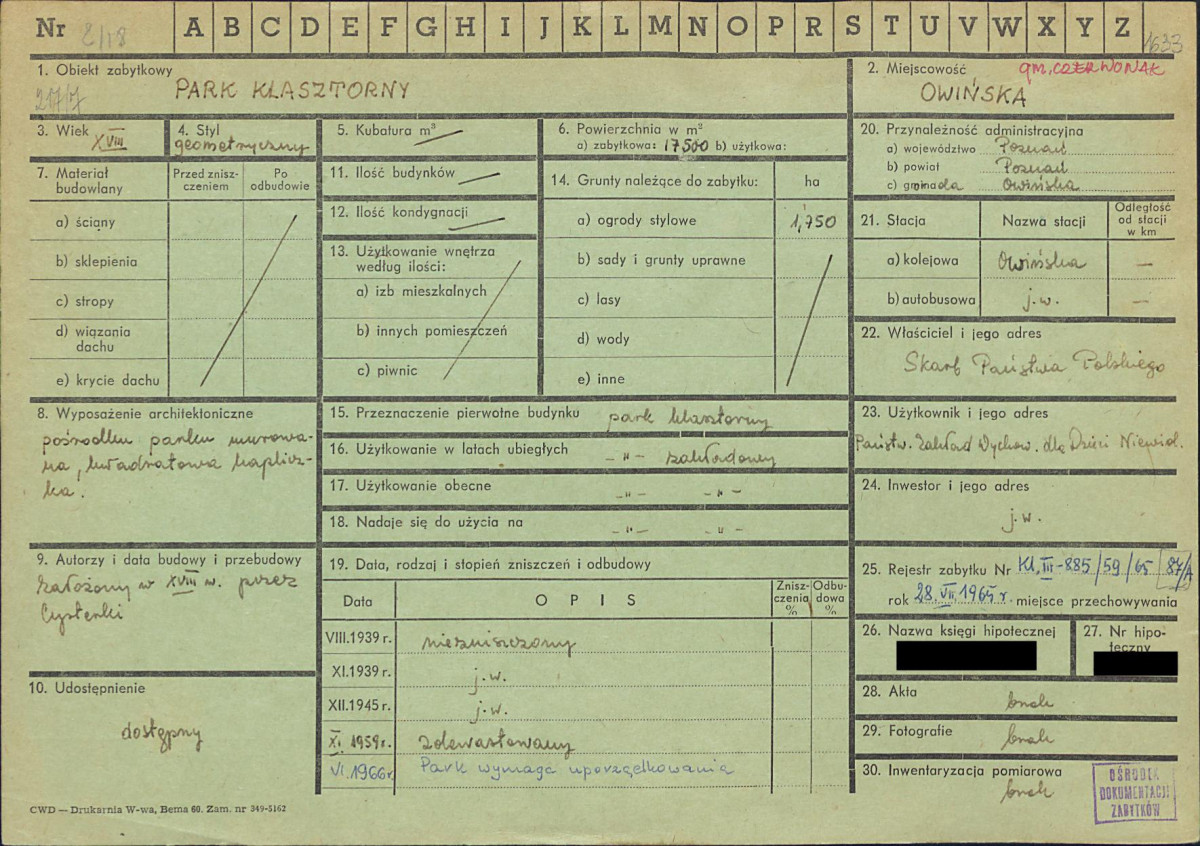 Nr 2/18 A B C D E F G H I J K L M N O P R S T U V W X Y Z 1633
1. Obiekt zabytkowy
217/7
PARK KLASZTORNY
2. Miejscowość gm. CZERWONAK
OWIŃSKA
3. Wiek XVIII
4. Styl
geometryczny
5. Kubatura m³
6. Powierzchnia w m²
a) zabytkowa: 17500 b) użytkowa:
7. Materiał budowlany
Przed zniszczeniem
Po odbudowie
a) ściany
b) sklepienia
c) stropy
d) wiązania dachu
e) krycie dachu
11. Ilość budynków
12. Ilość kondygnacji
13. Użytkowanie wnętrza
według ilości:
a) izb mieszkalnych
b) innych pomieszczeń
c) piwnic
14. Grunty należące do zabytku: ha
a) ogrody stylowe 1,750
b) sady i grunty uprawne
c) lasy
d) wody
e) inne
20. Przynależność administracyjna
a) województwo Poznań
b) powiat Poznań
c) gromada Owińska
21. Stacja
Nazwa stacji
Odległość od stacji w km
a) kolejowa Owińska —
b) autobusowa j.w. —
22. Właściciel i jego adres
Skarb Państwa Polskiego
8. Wyposażenie architektoniczne
pośrodku parku murowa-
na, kwadratowa kaplicz-
ka.
15. Przeznaczenie pierwotne budynku park klasztorny
16. Użytkowanie w latach ubiegłych –"– zakładowy
17. Użytkowanie obecne –"– –"–
18. Nadaje się do użycia na –"– –"–
23. Użytkownik i jego adres
Państw. Zakład Wychow. dla Dzieci Niewid.
24. Inwestor i jego adres
j.w.
9. Autorzy i data budowy i przebudowy
założony w XVIII w. przez
Cysterki
10. Udostępnienie
dostępny
19. Data, rodzaj i stopień zniszczeń i odbudowy
Data
OPIS
Zniszczenia %
Odbudowa %
VIII.1939 r. niezniszczony
XI.1939 r. j.w.
XII.1945 r. j.w.
XI. 1959 r. zdewastowany
VI. 1966 r. Park wymaga uporządkowania
25. Rejestr zabytku Nr Kl.III-885/59/65 87/A
rok 28.VII.1965 r. miejsce przechowywania
26. Nazwa księgi hipotecznej
27. Nr hipoteczny
28. Akta
brak
29. Fotografie
brak
30. Inwentaryzacja pomiarowa
brak
OŚRODEK
DOKUMENTACJI
ZABYTKÓW
CWD — Drukarnia W-wa, Bema 60. Zam. nr 349-5162